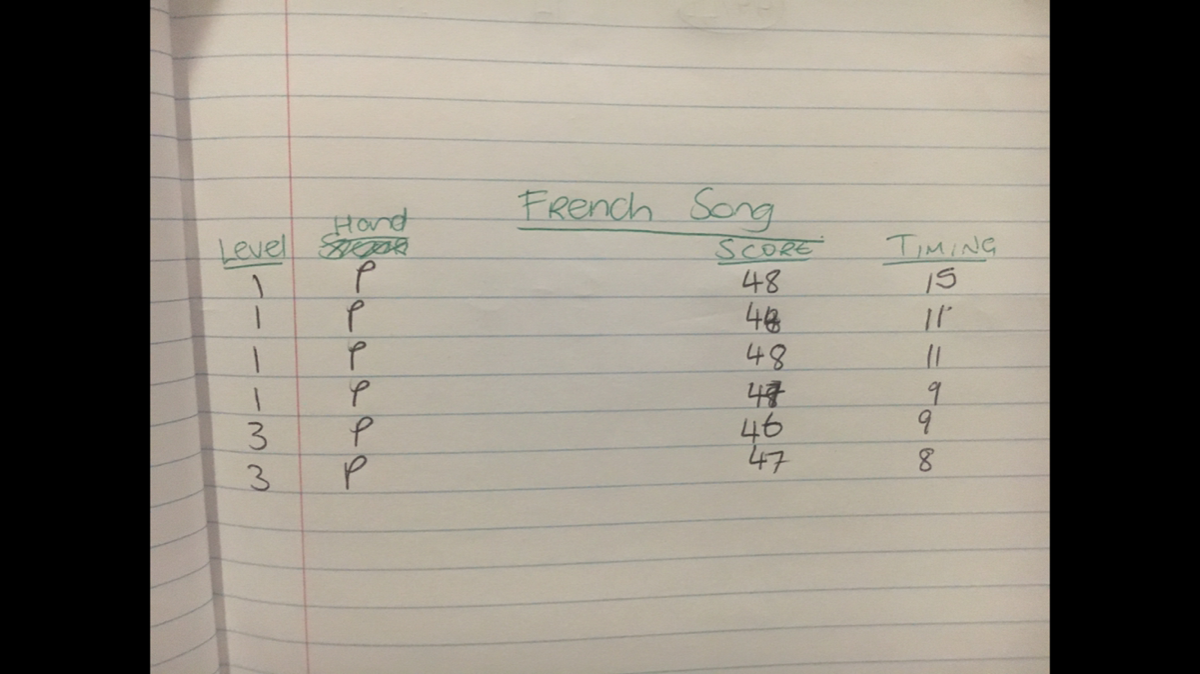 French Song
Level Hand SCORE TIMING
1 P 48 15
1 P 48 11
1 P 48 11
1 P 47 9
3 P 46 9
3 P 47 8